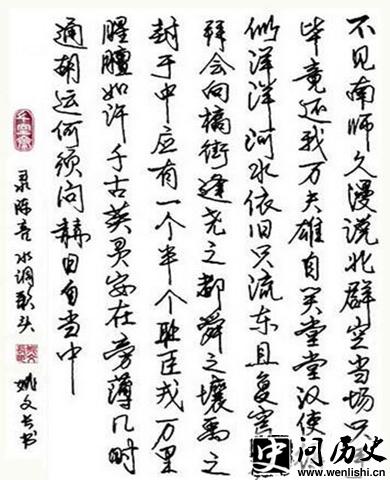 不见南师久漫说北群空当场只手
毕竟还我万夫雄自笑堂堂汉使得
似洋洋河水依旧只流东且复穹
拜会向槁街逢尧之都舜之壤禹之
封于中应有一个半个耻臣戎万里
腥膻如许千古英灵安在旁薄几时
通胡运何须问赫日自当中
录陈亮水调歌头
姚文长书
史问历史
www.wenlishi.cn